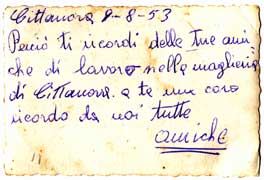 Cittanova 9-8-53
Perciò ti ricordi delle tue ami
che di lavoro nella maglieria
di Cittanova. a te un caro
ricordo da noi tutte
amiche